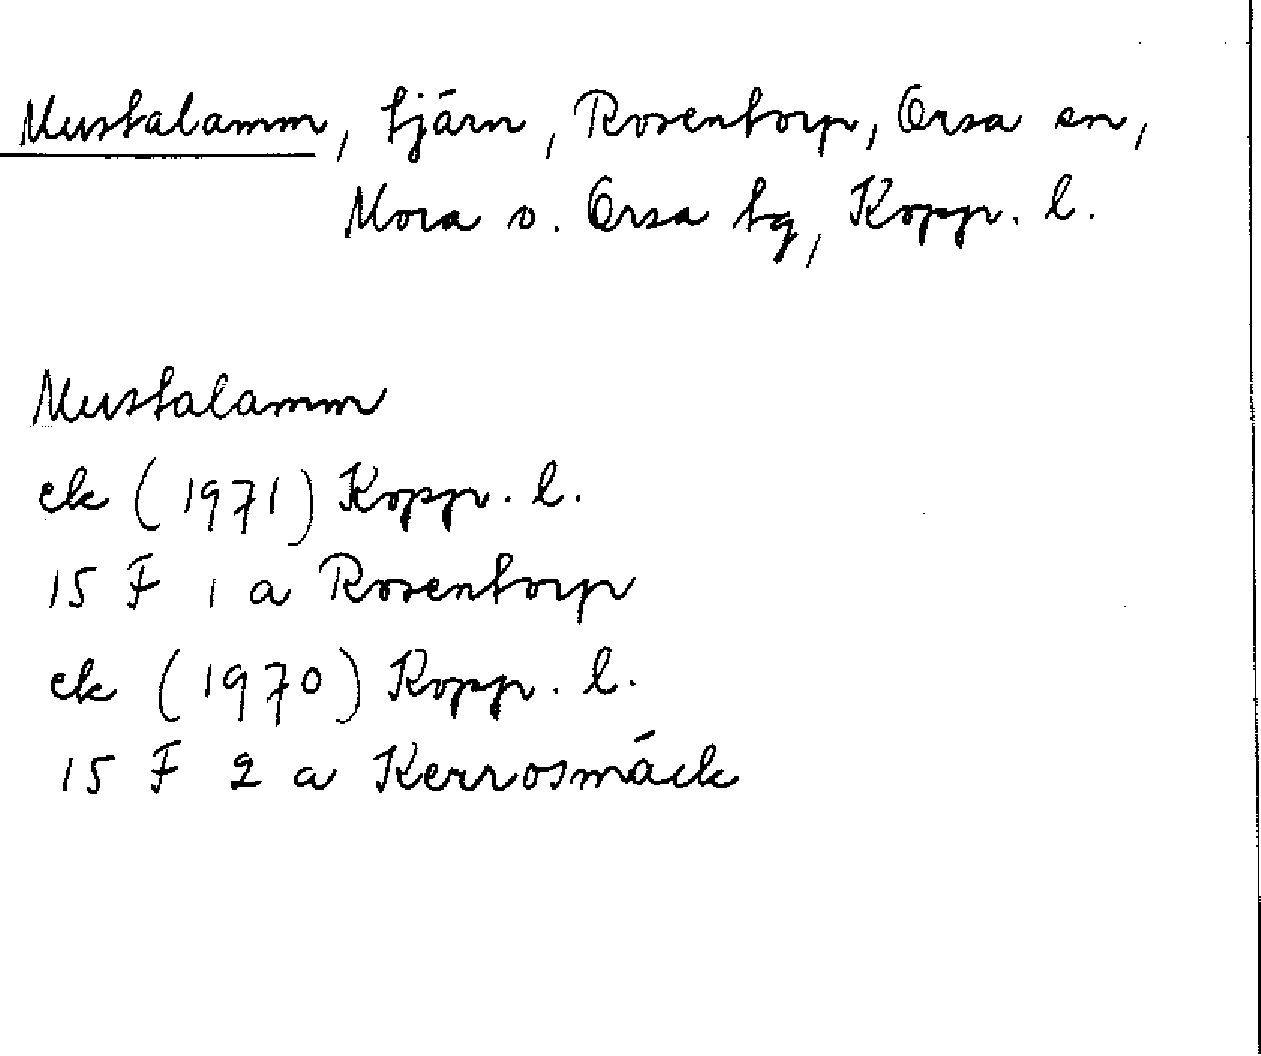 Mustalamm, tjärn, Rosentorp, Orsa sn,
Mora o. Orsa tg, Kopp. l.
Mustalamm
ek (1971) Kopp. l.
15 F 1 a Rosentorp
ek (1970) Kopp. l.
15 F 2 a Kerrosmäck